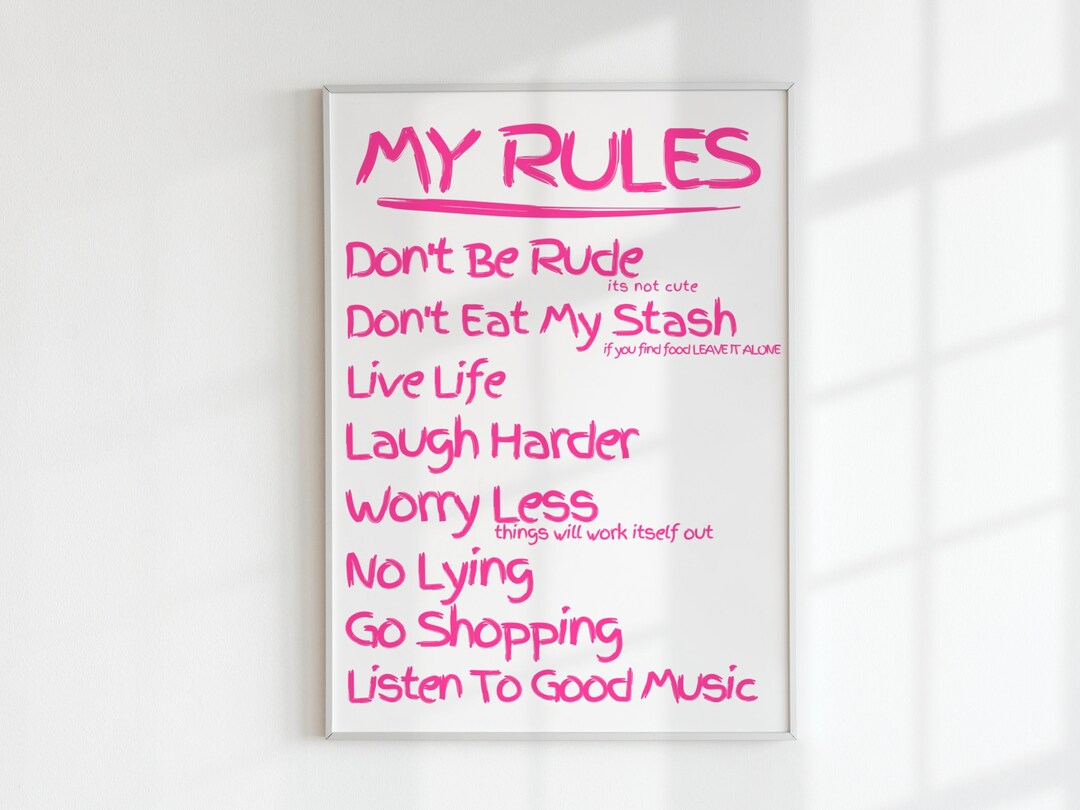 MY RULES
Don't Be Rude
its not cute
Don't Eat My Stash
if you find food LEAVE IT ALONE
Live Life
Laugh Harder
Worry Less
things will work itself out
No Lying
Go Shopping
Listen To Good Music